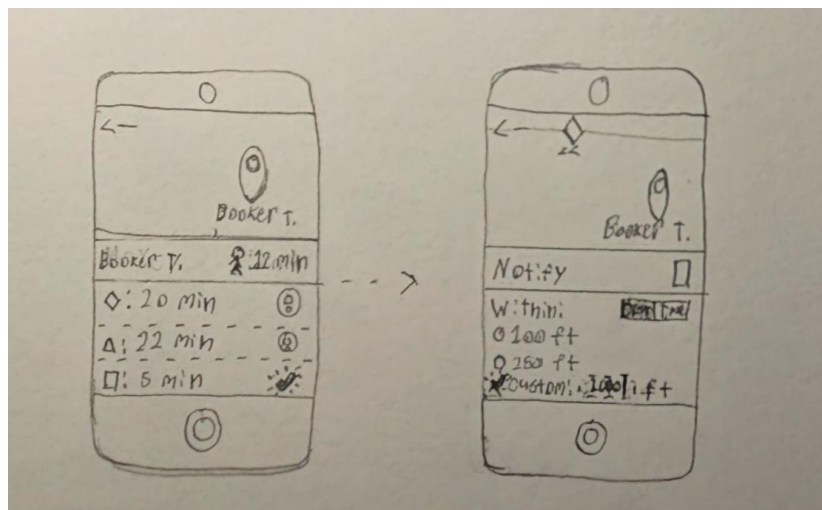 Booker T.
Booker T. :12 min
: 20 min
: 22 min
: 5 min
Booker T.
Notify
Within:
100 ft
250 ft
Custom: 1000 ft